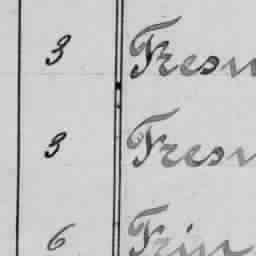 3 Fresn
3 Fresn
6 Frin